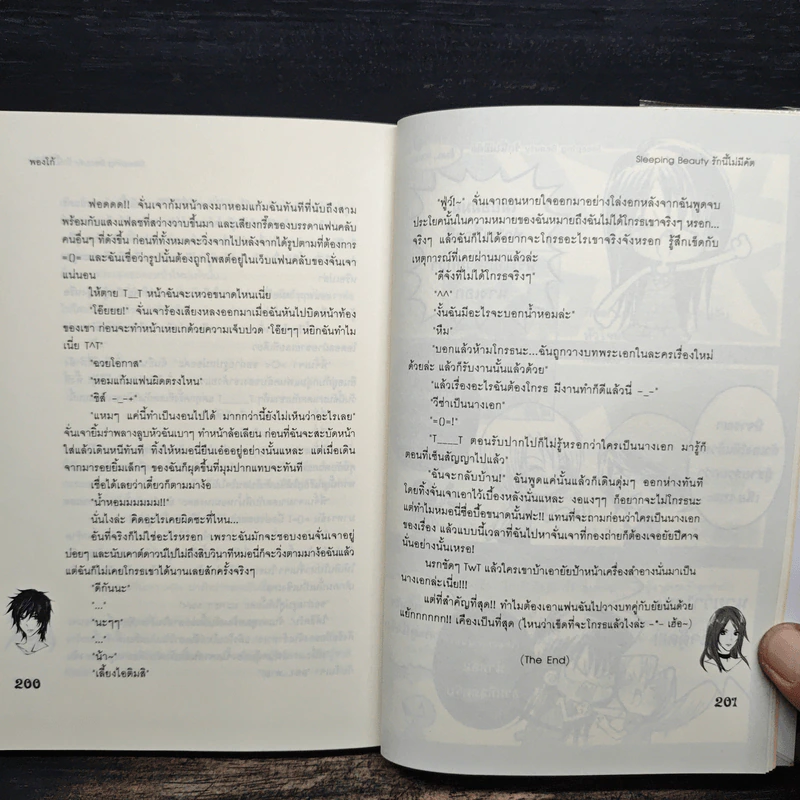 พองโก้
ฟอดดด!! จั่นเจาก้มหน้าลงมาหอมแก้มฉันทันทีที่นับถึงสาม
พร้อมกับแสงแฟลชที่สว่างวาบขึ้นมา และเสียงกรี๊ดของบรรดาแฟนคลับ
คนอื่นๆ ที่ดังขึ้น ก่อนที่ทั้งหมดจะวิ่งจากไปหลังจากได้รูปตามที่ต้องการ
=()= และฉันเชื่อว่ารูปนั้นต้องถูกโพสต์อยู่ในเว็บแฟนคลับของจั่นเจา
แน่นอน
ให้ตาย T_T หน้าฉันจะเหวอขนาดไหนเนี่ย
"โอ๊ยยย!" จั่นเจาร้องเสียงหลงออกมาเมื่อฉันหันไปบิดหน้าท้อง
ของเขา ก่อนจะทำหน้าเหยเกด้วยความเจ็บปวด "โอ๊ยๆๆ หยิกฉันทำไม
เนี่ย T^T"
"ฉวยโอกาส"
"หอมแก้มแฟนผิดตรงไหน"
"ชิส์ -_-+"
"แหมๆ แค่นี้ทำเป็นงอนไปได้ มากกว่านี้ยังไม่เห็นว่าอะไรเลย"
จั่นเจายิ้มร่าพลางลูบหัวฉันเบาๆ ทำหน้าล้อเลียน ก่อนที่ฉันจะสะบัดหน้า
ใส่แล้วเดินหนีทันที ทิ้งให้หมอนี่ยืนเอ๋ออยู่อย่างนั้นแหละ แต่เมื่อเดิน
จากมารอยยิ้มเล็กๆ ของฉันก็ผุดขึ้นที่มุมปากแทบจะทันที
เชื่อได้เลยว่าเดี๋ยวก็ตามมาง้อ
"น้ำหอมมมมมม!!"
นั่นไงล่ะ คิดอะไรเคยผิดซะที่ไหน...
อันที่จริงก็ไม่ใช่อะไรหรอก เพราะฉันมักจะชอบงอนจั่นเจาอยู่
บ่อยๆ และนับเคาต์ดาวน์ไปไม่ถึงสิบวินาทีหมอนี่ก็จะวิ่งตามมาง้อฉันแล้ว
แต่ฉันก็ไม่เคยโกรธเขาได้นานเลยสักครั้งจริงๆ
"ดีกันนะ"
"..."
"นะๆๆ"
"..."
"น้า~"
"เลี้ยงไอติมสิ"
200
Sleeping Beauty รักนี้ไม่มีคัต
"ฟู่ว์!~" จั่นเจาถอนหายใจออกมาอย่างโล่งอกหลังจากฉันพูดจบ
ประโยคนั้นในความหมายของฉันหมายถึงฉันไม่ได้โกรธเขาจริงๆ หรอก...
จริงๆ แล้วฉันก็ไม่ได้อยากจะโกรธอะไรเขาจริงจังหรอก รู้สึกเข็ดกับ
เหตุการณ์ที่เคยผ่านมาแล้วล่ะ
"ดีจังที่ไม่ได้โกรธจริงๆ"
"^^"
"งั้นฉันมีอะไรจะบอกน้ำหอมล่ะ"
"หืม"
"บอกแล้วห้ามโกรธนะ...ฉันถูกวางบทพระเอกในละครเรื่องใหม่
ด้วยล่ะ แล้วก็รับงานนั้นแล้วด้วย"
"แล้วเรื่องอะไรฉันต้องโกรธ มีงานทำก็ดีแล้วนี่ -_-"
"วีซ่าเป็นนางเอก"
"=()=!"
"T___T ตอนรับปากไปก็ไม่รู้หรอกว่าใครเป็นนางเอก มารู้ก็
ตอนที่เซ็นสัญญาไปแล้ว"
"ฉันจะกลับบ้าน!" ฉันพูดแค่นั้นแล้วก็เดินดุ่มๆ ออกห่างทันที
โดยทิ้งจั่นเจาเอาไว้เบื้องหลังนั่นแหละ งอแงๆๆ ก็อยากจะไม่โกรธนะ
แต่ทำไมหมอนี่ซื่อบื้อขนาดนั้นฟะ!! แทนที่จะถามก่อนว่าใครเป็นนางเอก
ของเรื่อง แล้วแบบนี้เวลาที่ฉันไปหาจั่นเจาที่กองถ่ายก็ต้องเจอยัยปีศาจ
นั่นอย่างนั้นเหรอ!
นรกชัดๆ TwT แล้วใครเขาบ้าเอายัยป้าหน้าเครื่องสำอางนั่นมาเป็น
นางเอกล่ะเนี่ย!!!
แต่ที่สำคัญที่สุด!! ทำไมต้องเอาแฟนฉันไปวางบทคู่กับยัยนั่นด้วย
แย้กกกกกก!! เคืองเป็นที่สุด (ไหนว่าเข็ดที่จะโกรธแล้วไงล่ะ -*- เฮ้อ~)
(The End)
201